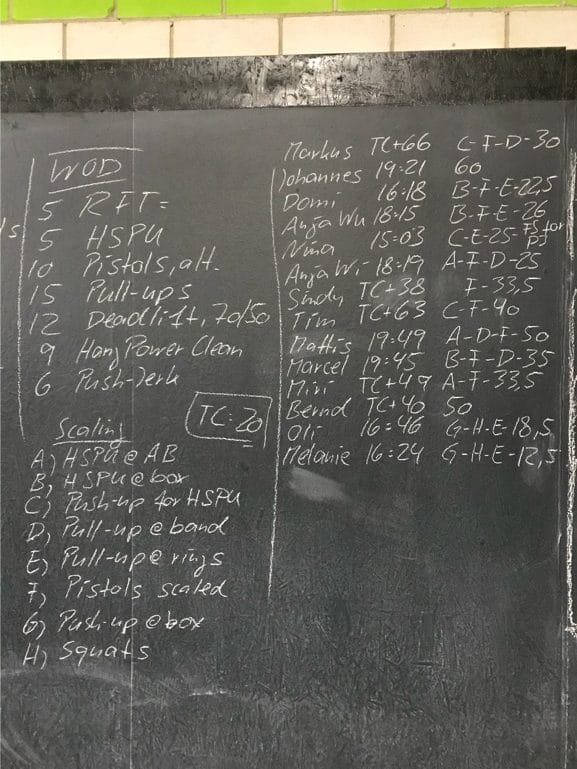 WOD
5 RFT:
5 HSPU
10 Pistols, alt.
15 Pull-ups
12 Deadlift, 70/50
9 Hang Power Clean
6 Push-Jerk
TC: 20
Scaling
A) HSPU @ AB
B) HSPU @ box
C) Push-up for HSPU
D) Pull-up @ band
E) Pull-up @ rings
F) Pistols scaled
G) Push-up @ box
H) Squats
Markus TC+66 C-F-D-30
Johannes 19:21 60
Domi 16:18 B-F-E-22,5
Anja Wu 18:15 B-F-E-26
Nina 15:03 C-E-25 FS for PJ
Anja Wi 18:19 A-F-D-25
Sindy TC+38 F-33,5
Tim TC+63 C-F-40
Mattis 19:49 A-D-F-50
Marcel 19:45 B-F-D-35
Miri TC+49 A-F-33,5
Bernd TC+40 50
Oli 16:46 G-H-E-18,5
Melanie 16:24 G-H-E-12,5